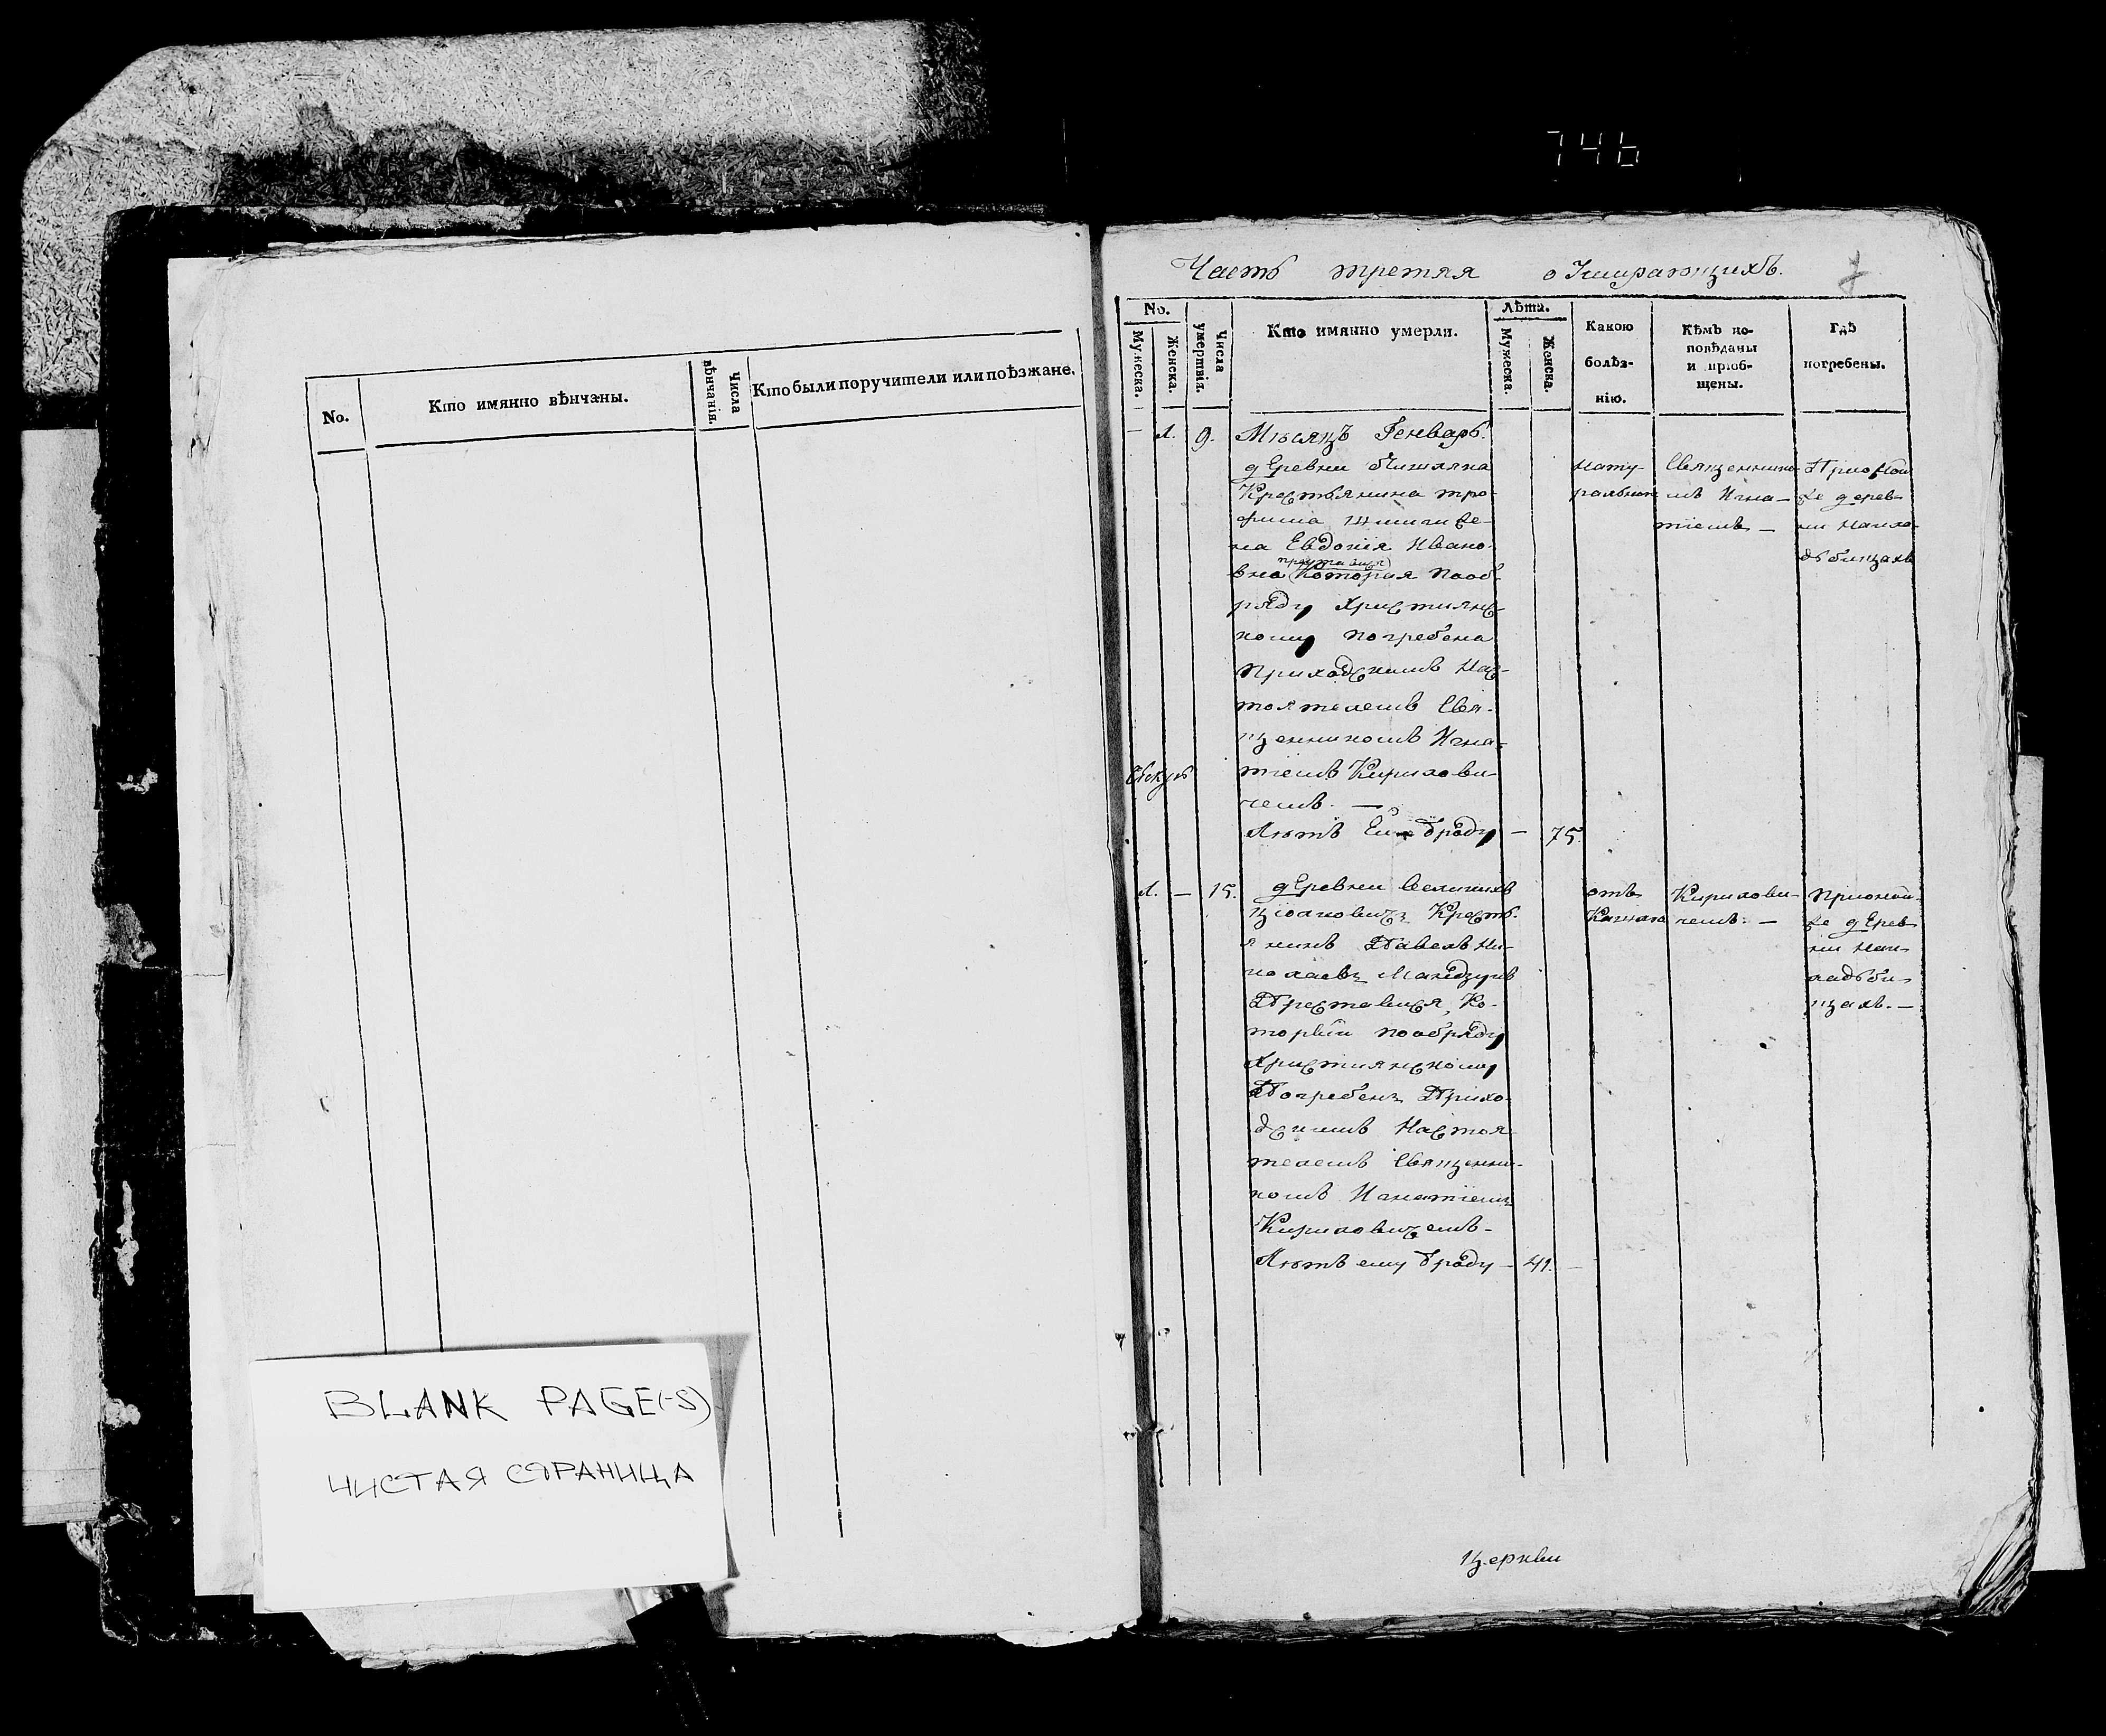 746
No.
Кто имянно вѣнчаны.
Числа вѣнчанія.
Кто были поручители или поѣзжане.
BLANK PAGE(-S)
ЧИСТАЯ СТРАНИЦА
Часть третяя о Умирающихъ.
No.
Мужеска.
Женска.
Числа умертвія.
Кто имянно умерли.
Лѣта.
Мужеска.
Женска.
Какою болѣз-
нію.
Кѣмъ по-
повѣданы
и пріоб-
щены.
Гдѣ
погребены.
— 1. 9. Мѣсяцъ Генварь.
деревни
Крестьянина тро-
фима
на Евдокія Ивано-
преставися
вна Которая пооб-
ряду Християнс-
кому погребена
Приходскимъ Нас-
тоятелемъ Свя-
щенникомъ Игна-
тіемъ Кирилови-
чемъ. —
Лѣтъ Ей — 75.
нату-
ральною
Священнико-
мъ Игна-
тіемъ —
При оной
же дерев-
ни накла-
дбищахъ
1. — 15. деревни
Крест-
янинъ Павелъ Ни-
колаевъ
Преставися, Ко-
торый пообряду
Християнскому
Погребенъ Прихо-
дскимъ Настоя-
телемъ Священни-
комъ Игнатіемъ
Кириловичемъ —
Лѣтъ ему — 41. —
отъ
Кашля
Кирилови-
чемъ. —
При оной
же дерев-
ни нак-
ладби-
щахъ. —
Церкви